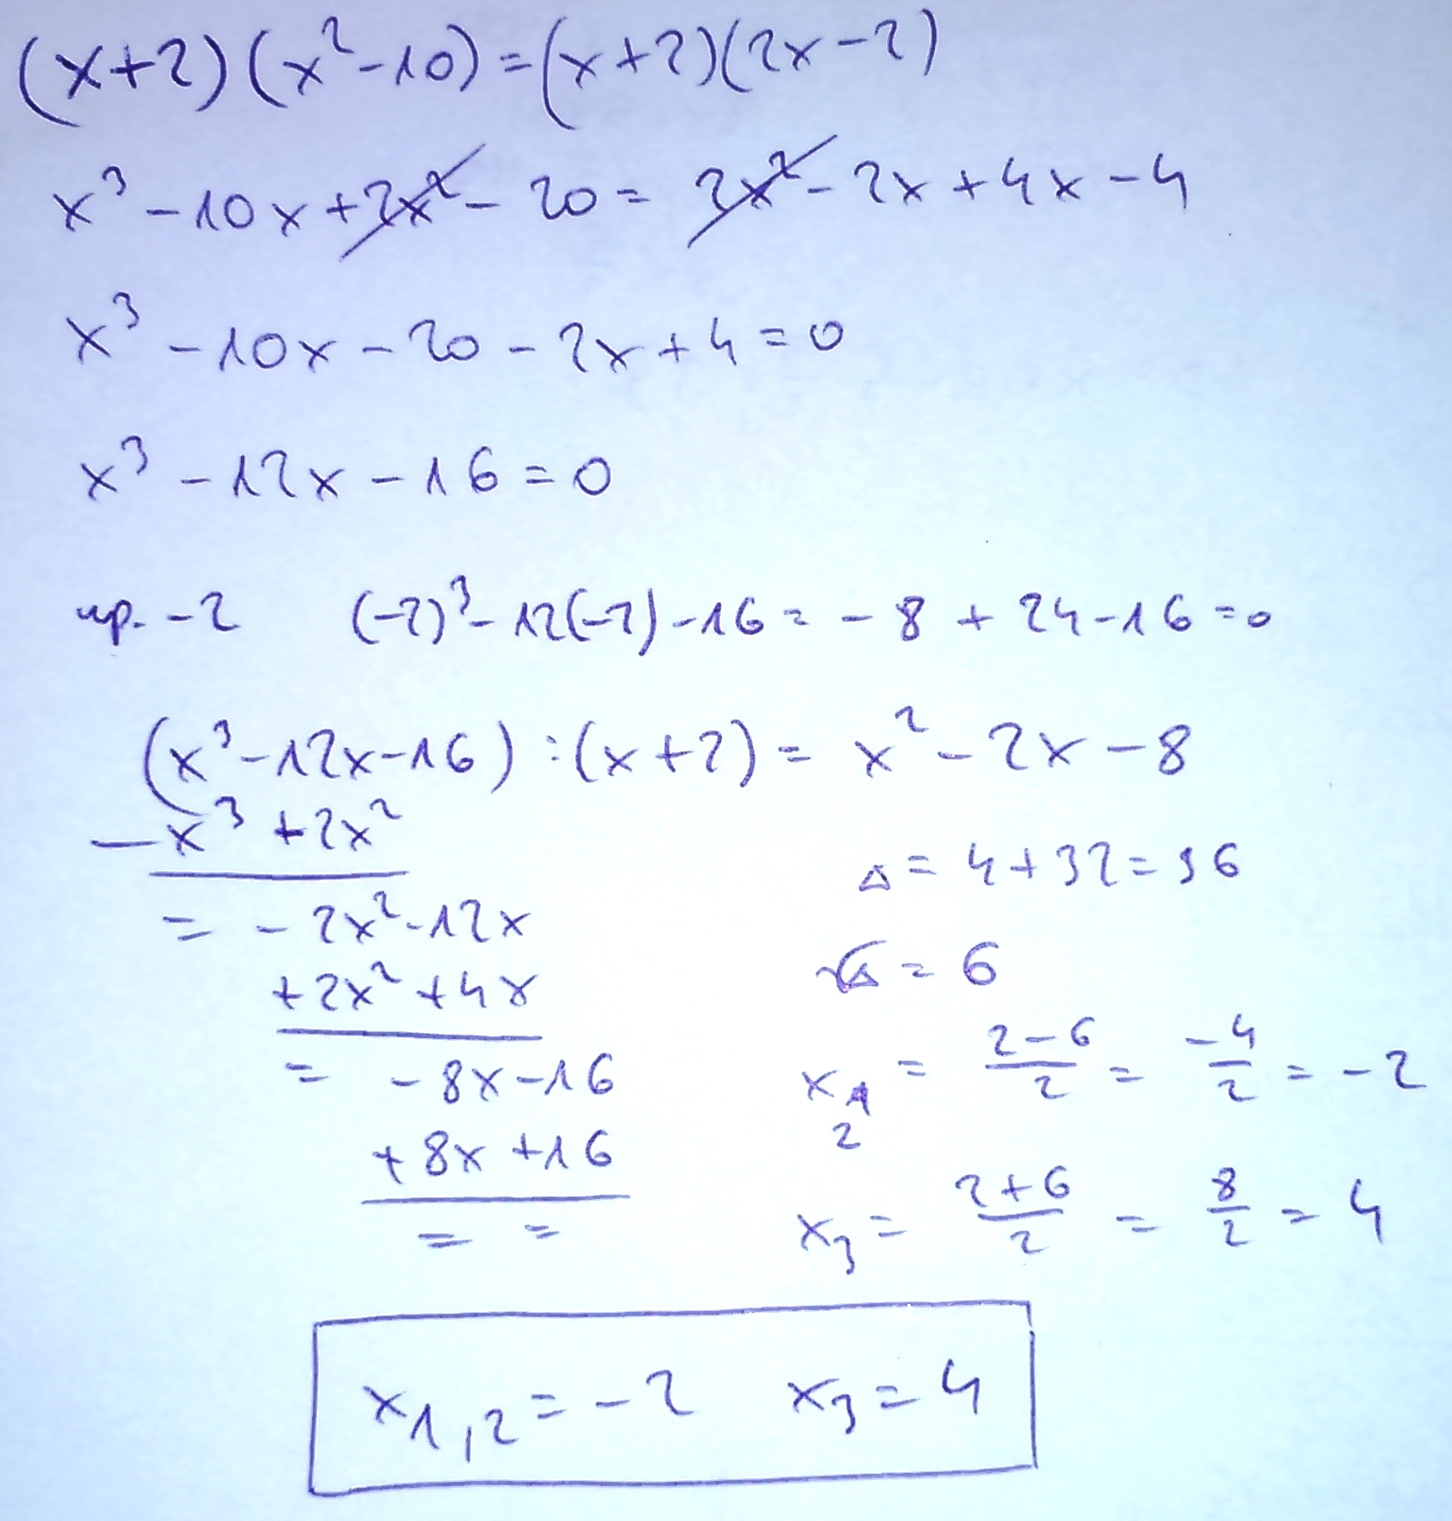 (x+2)(x²-10)=(x+2)(2x-2)
x³-10x+2x²-20=2x²-2x+4x-4
x³-10x-20-2x+4=0
x³-12x-16=0
np. -2 (-2)³-12(-2)-16=-8+24-16=0
(x³-12x-16):(x+2)=x²-2x-8
-x³+2x²
= -2x²-12x
+2x²+4x
= -8x-16
+8x+16
= =
Δ=4+32=36
√Δ=6
x₁ = (2-6)/2 = -4/2 = -2
2
x₃ = (2+6)/2 = 8/2 = 4
x₁,₂=-2 x₃=4